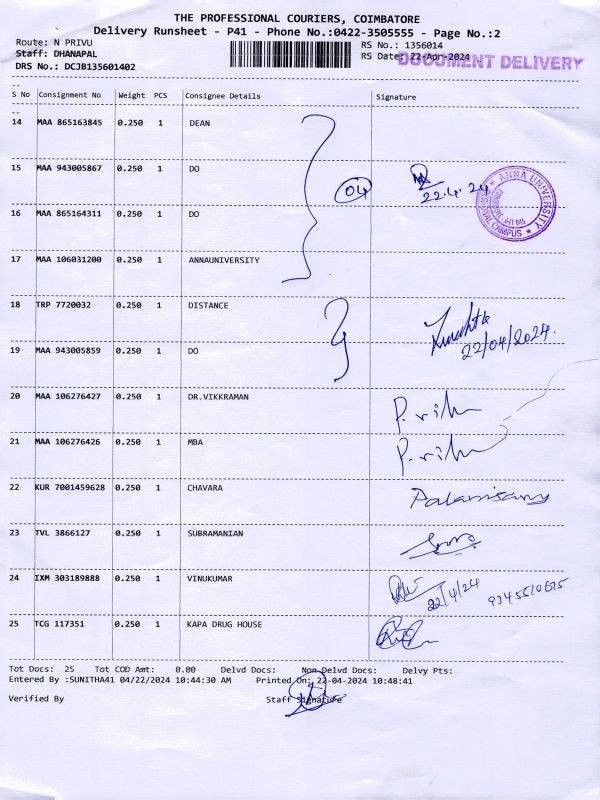 THE PROFESSIONAL COURIERS, COIMBATORE
Delivery Runsheet - P41 - Phone No.:0422-3505555 - Page No.:2
Route: N PRIVU
RS No.: 1356014
Staff: DHANAPAL
RS Date: 22-Apr-2024
DOCUMENT DELIVERY
DRS No.: DCJB135601402
S No Consignment No Weight PCS Consignee Details Signature
14 MAA 865163845 0.250 1 DEAN
15 MAA 943005867 0.250 1 DO
04
22.4.24
ANNA UNIVERSITY
REGIONAL CAMPUS
16 MAA 865164311 0.250 1 DO
17 MAA 106031200 0.250 1 ANNAUNIVERSITY
18 TRP 7720032 0.250 1 DISTANCE
22/04/2024.
19 MAA 943005859 0.250 1 DO
20 MAA 106276427 0.250 1 DR.VIKKRAMAN
21 MAA 106276426 0.250 1 MBA
22 KUR 7001459628 0.250 1 CHAVARA
Palanisamy
23 TVL 3866127 0.250 1 SUBRAMANIAN
24 IXM 303189888 0.250 1 VINUKUMAR
22/4/24
25 TCG 117351 0.250 1 KAPA DRUG HOUSE
Tot Docs: 25 Tot COD Amt: 0.00 Delvd Docs: Non Delvd Docs: Delvy Pts:
Entered By :SUNITHA41 04/22/2024 10:44:30 AM Printed On: 22-04-2024 10:48:41
Verified By Staff Signature